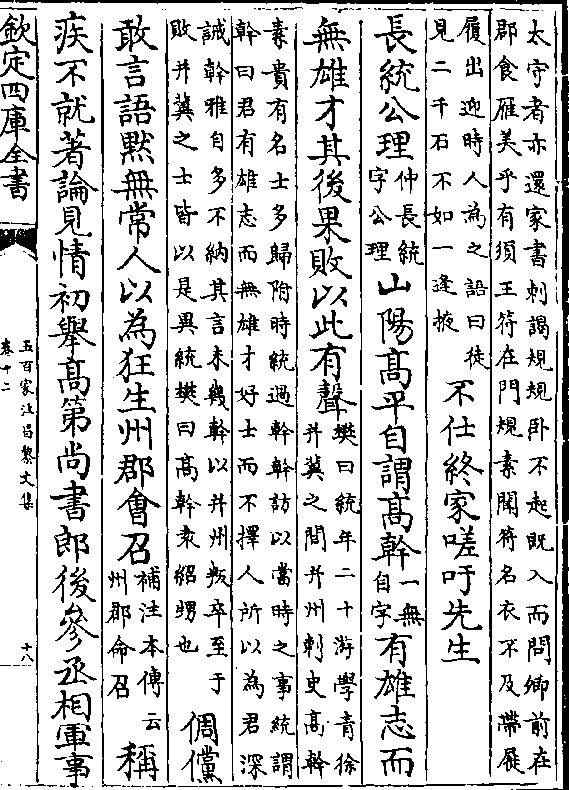 太守者亦還家書刺謁規規卧不起既入而問卿前在
郡食雁美乎有須王符在門規素聞符名衣不及帶屣
履出迎時人為之語曰徒
見二千石不如一逢掖
不仕終家嗟吁先生
長統公理
仲長統
字公理
山陽高平自謂高幹
一無
自字
有雄志而
無雄才其後果敗以此有聲
樊曰統年二十游學青徐
并冀之間并州刺史高幹
素貴有名士多歸附時統過幹幹訪以當時之事統謂
幹曰君有雄志而無雄才好士而不擇人所以為君深
誡幹雅自多不納其言未幾幹以并州叛卒至于
敗并冀之士皆以是異統樊曰高幹袁紹甥也
倜儻
敢言語黙無常人以為狂生州郡會召
補注本傳云
州郡命召
稱
疾不就著論見情初舉高第尚書郎後參丞相軍事
欽定四庫全書
五百家注昌黎文集
卷十二
十八